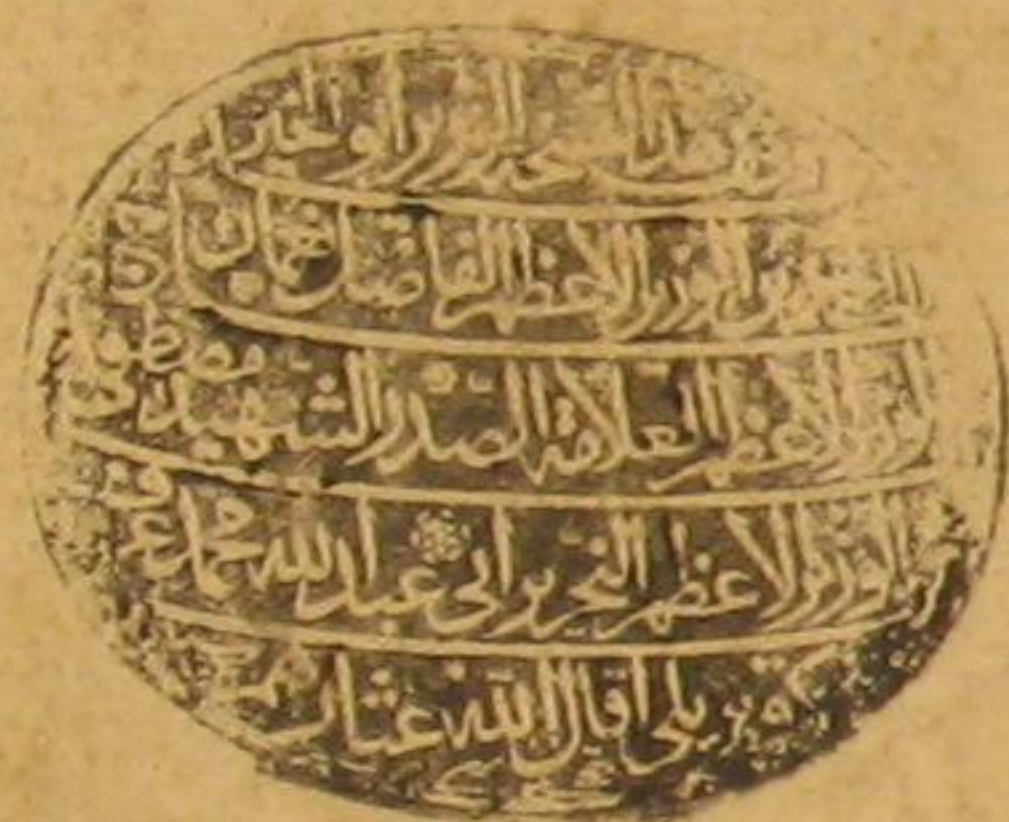 وقف هذا الوزير ابو الخير
الحاج احمد بن الوزير الاعظم الفاضل نعمان بن
الوزير الاعظم العلامة الصدر الشهيد مصطفى
بن الوزير الاعظم النحرير ابى عبد الله محمد عرف
بكوپريلى اقال الله عثارهم